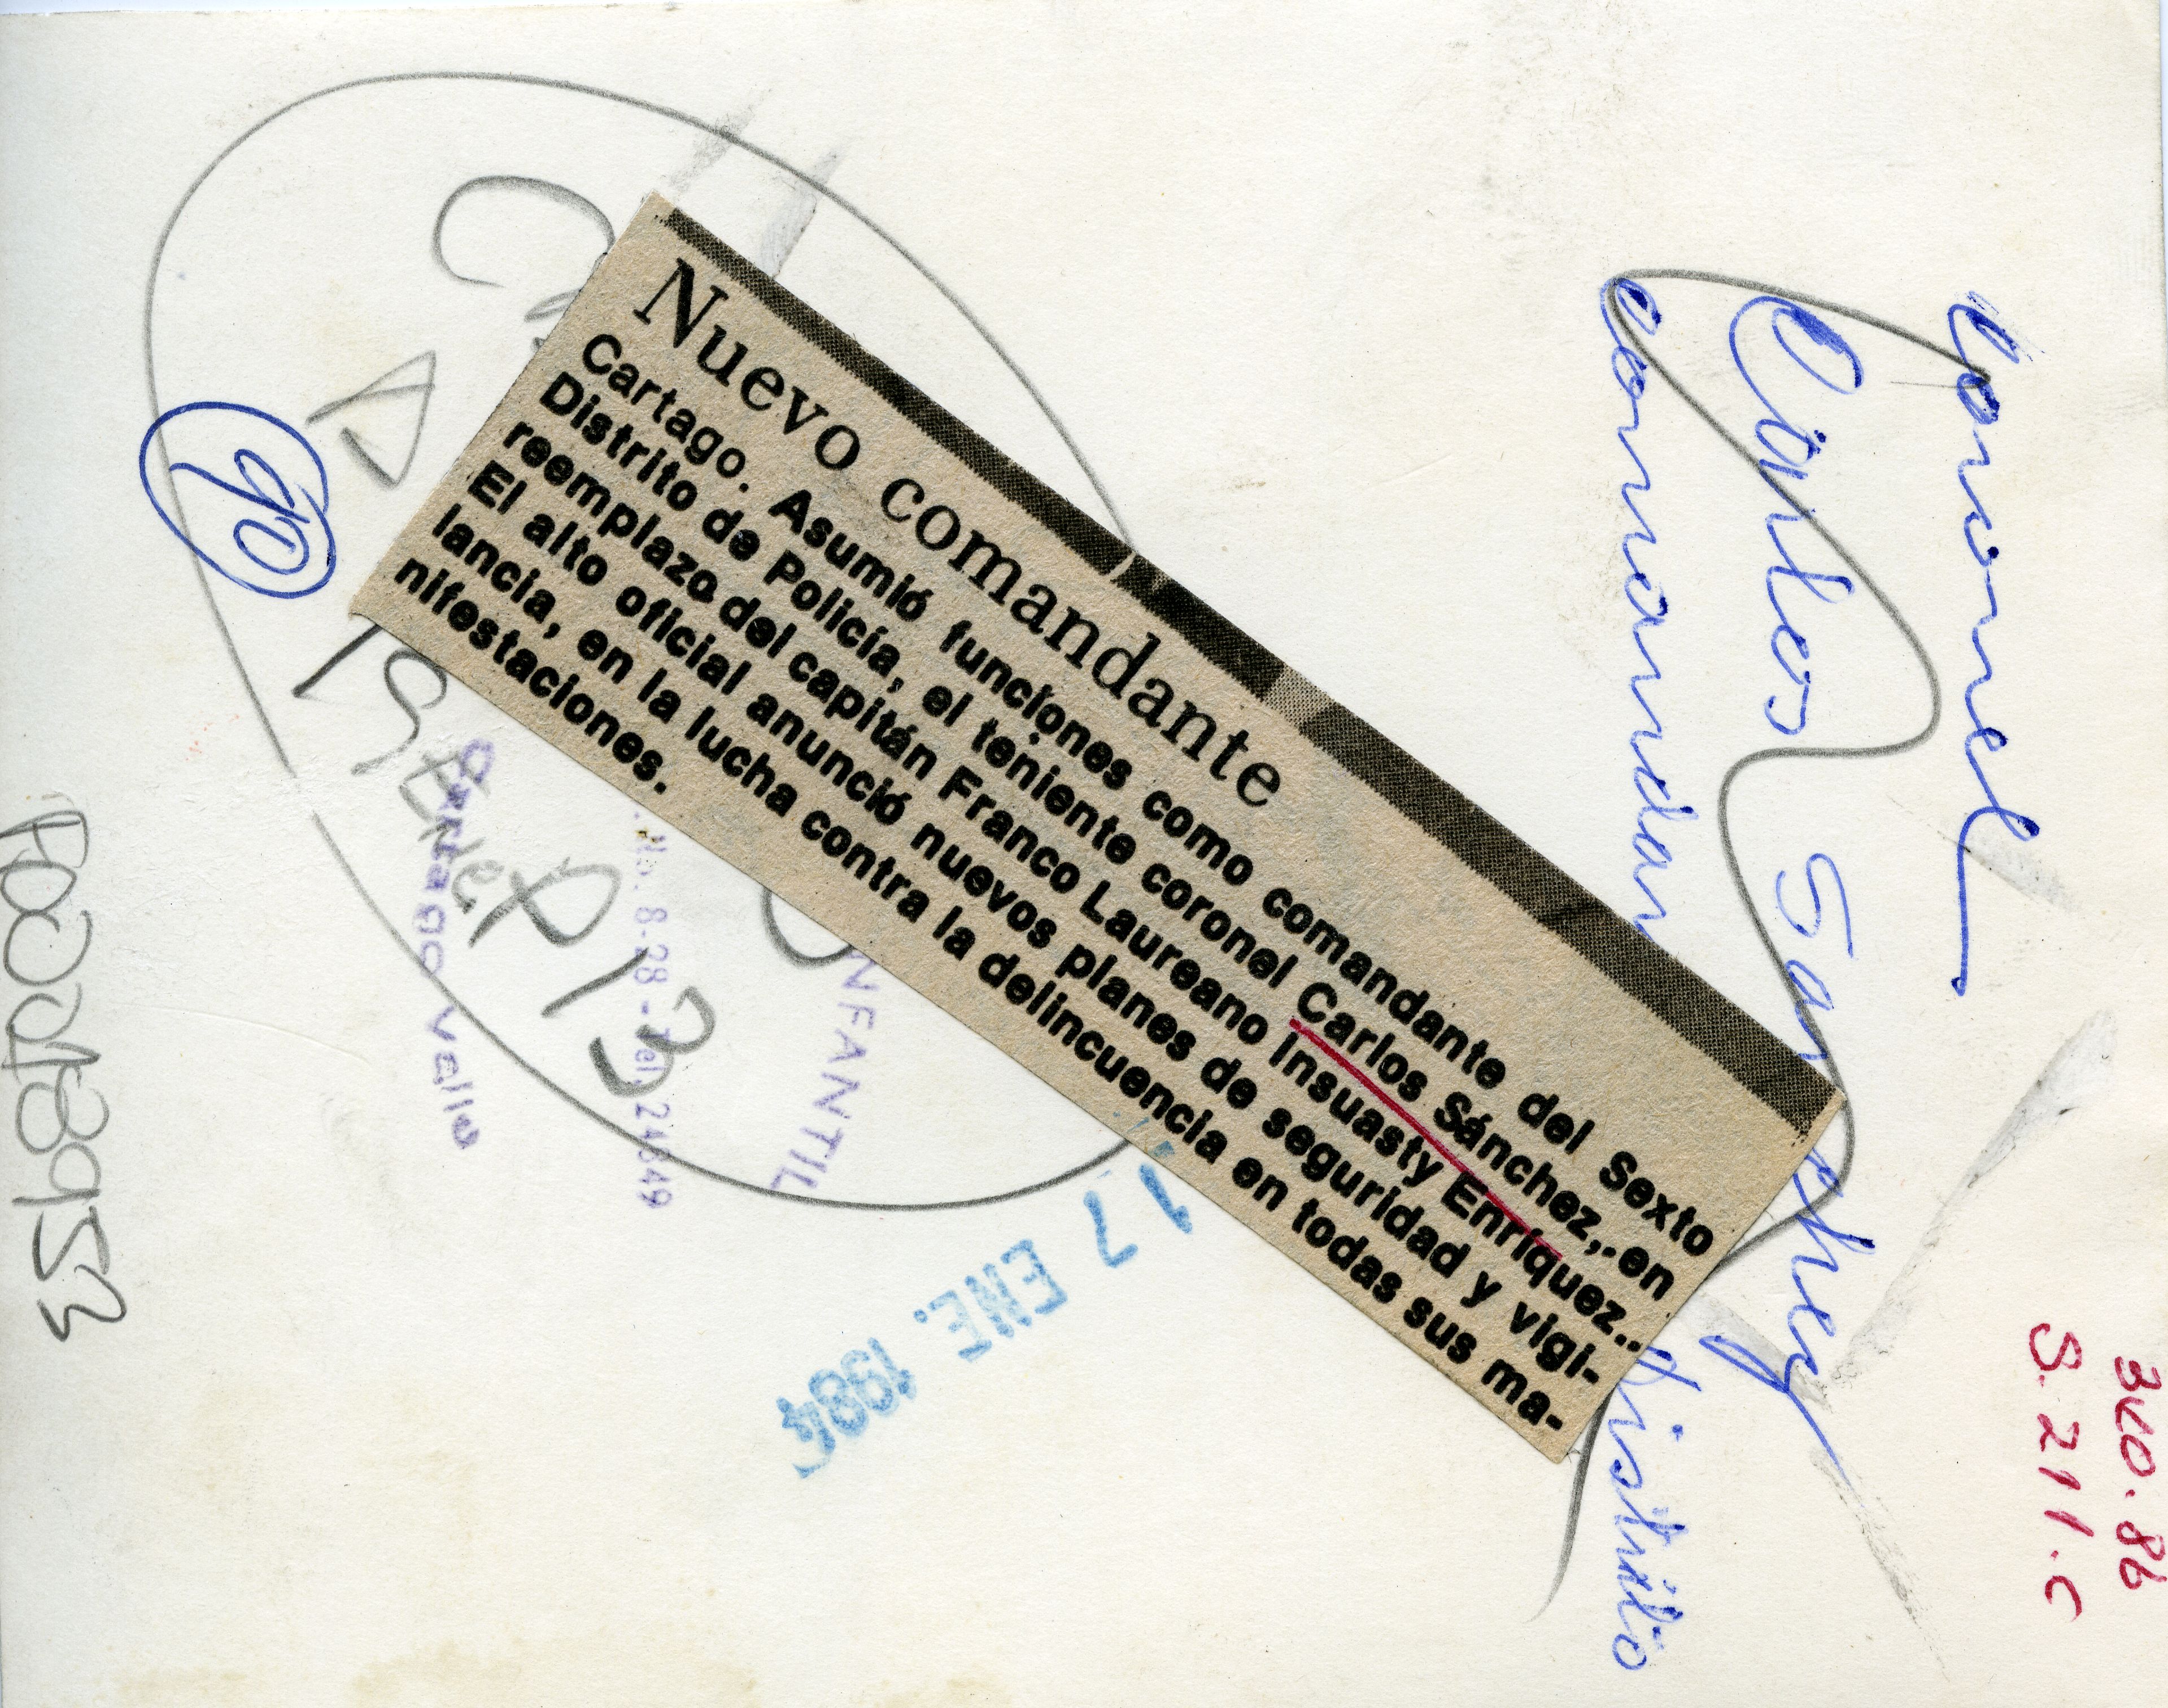 coronel
Carlos Sanchez
comandan
distrito
320.86
S.211.C
Nuevo comandante
Cartago. Asumió funciones como comandante del Sexto
Distrito de Policía, el teniente coronel Carlos Sánchez, en
reemplazo del capitán Franco Laureano Insuasty Enríquez..
El alto oficial anunció nuevos planes de seguridad y vigi-
lancia, en la lucha contra la delincuencia en todas sus ma-
nifestaciones.
90
13
NFANTIL
No. 8-28 - Tel. 24649
Cartago Valle
17 ENE. 1984